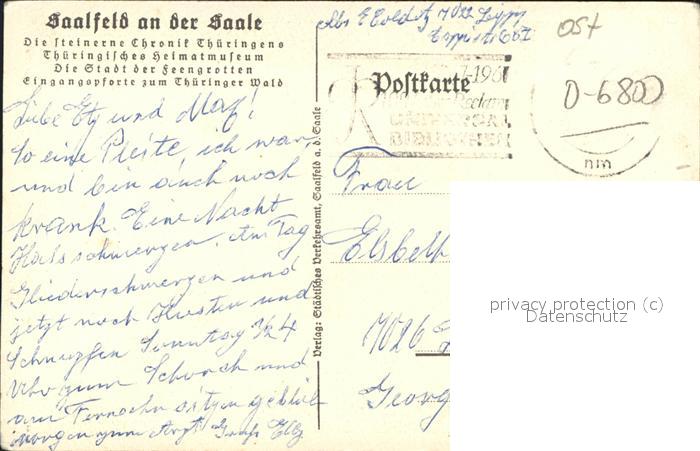 Saalfeld an der Saale
Die steinerne Chronik Thüringens
Thüringisches Heimatmuseum
Die Stadt der Feengrotten
Eingangspforte zum Thüringer Wald
Liebe Elz und Max!
So eine Pleite, ich war
und bin auch noch
krank. Eine Nacht
Halsschmerzen. Am Tag
Gliederschmerzen und
jetzt noch Husten und
Schnupfen Sonntag 1/2 4
Uhr zum Schorch und
am Fernsehn sitzen geblie
morgen zum Arzt. Gruß Elly
Verlag: Städtisches Verkehrsamt, Saalfeld a. d. Saale
Abs E 7022 Leipz
Ost
Postkarte
Reclam
UNIVERSAL
BIBLIOTHEK
D-6800
nm
Frau
Elsbeth
7026
Georg
privacy protection (c)
Datenschutz